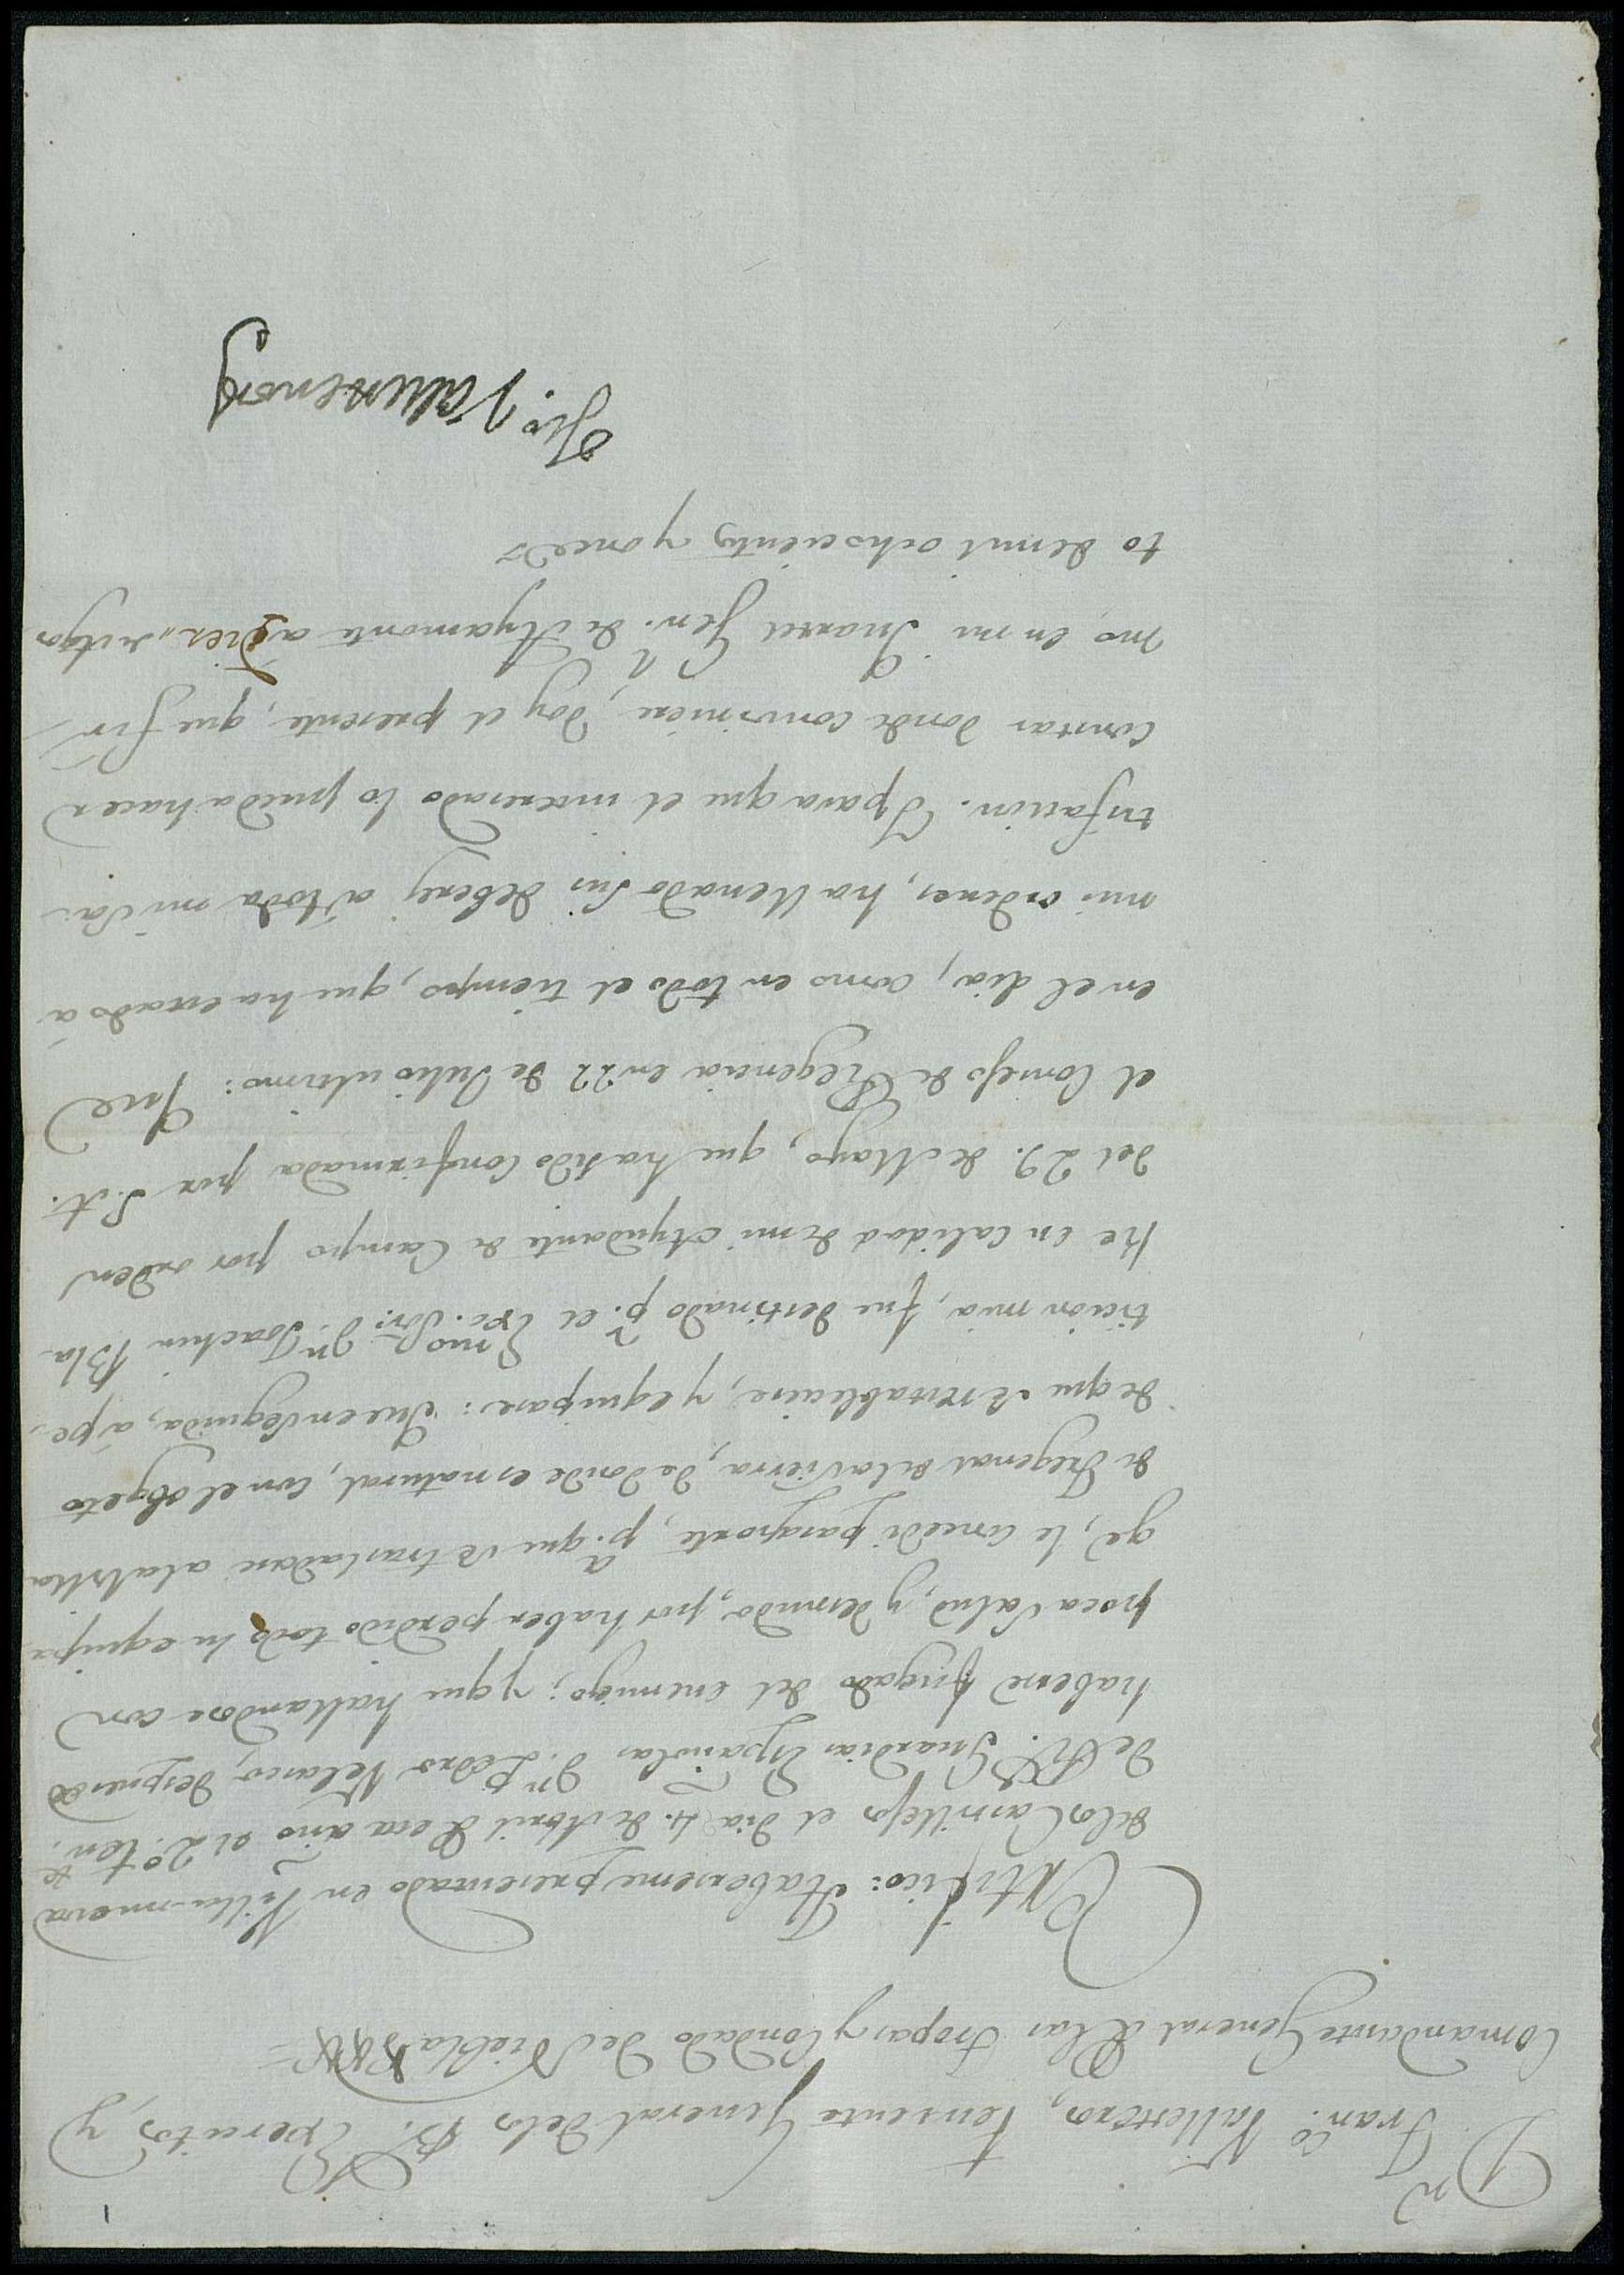 1
Dn. Franco. Vallesteros, Teniente General delos Rs. Exercitos, y
Comandante General delas Tropas y Condado de Niebla &&& =
Certifico: Haberseme presentado en Villa-nueva
delos Castillejos el dia 4. de Abril de ese año el 2º ten.te
de Rs. Guardias Españolas Dn. Pedro Velasco, despues de
haberse fugado del enemigo; y que hallandose con
poca Salud, y desnudo, por haber perdido todo su equipa
ge, le concedí pasaporte, pa. que se trasladase ala Villa
de Fregenal dela Sierra, de donde es natural, con el objeto
de que se restableciese, y equipase: Que en Seguida, á pe-
ticion mia, fue destinado p.r el Exc.mo Sor. Dn. Joachin Bla-
ke en Calidad de mi Ayudante de Campo por orden
del 29. de Mayo, que ha sido Confirmada por S. A.
el Consejo de Regencia en 22 de Julio ultimo: Que
en el dia, como en todo el tiempo, que ha estado á
mis ordenes, ha llenado Sus deberes á toda mi Sa-
tisfacion. Y para que el interesado lo pueda hacer
Constar donde conviniere, doy el presente, que fir-
mo, en mi Quartel Gen.l de Ayamonte a Diez, de Agos
to de mil ochocientos y once
Fco. Vallesteros